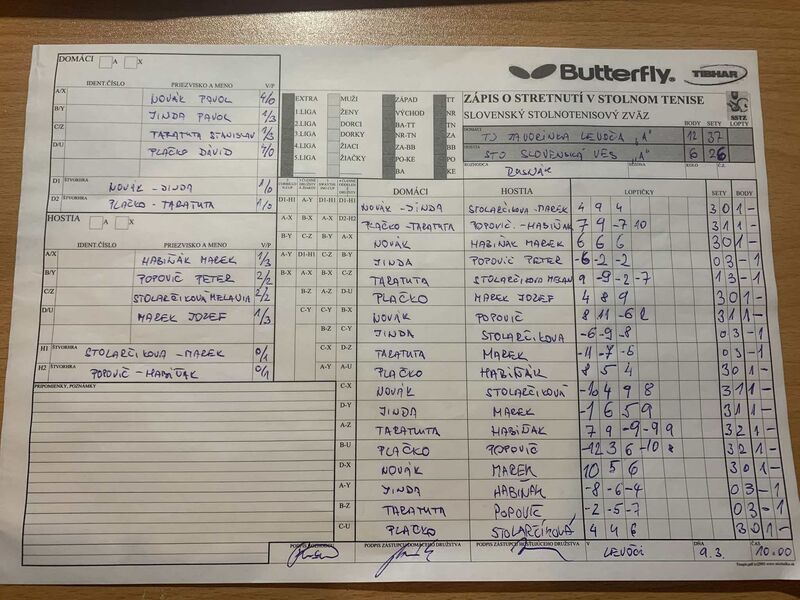 DOMÁCI A X
IDENT.ČÍSLO PRIEZVISKO A MENO V/P
A/X NOVÁK PAVOL 4/0
B/Y JINDA PAVOL 1/3
C/Z TARATUTA STANISLAV 1/3
D/U PLAČKO DÁVID 4/0
D1 ŠTVORHRA NOVÁK - JINDA 1/0
D2 ŠTVORHRA PLAČKO - TARATUTA 1/0
HOSTIA A X
IDENT.ČÍSLO PRIEZVISKO A MENO V/P
A/X HABIŇÁK MAREK 1/3
B/Y POPOVIČ PETER 2/2
C/Z STOLARČIKOVÁ MELANIA 2/2
D/U MAREK JOZEF 1/3
H1 ŠTVORHRA STOLARČIKOVA - MAREK 0/1
H2 ŠTVORHRA POPOVIČ - HABIŇAK 0/1
PRIPOMIENKY, POZNÁMKY
EXTRA MUŽI ZÁPAD TT
1.LIGA ŽENY VÝCHOD NR
2.LIGA DORCI BA-TT TN
3.LIGA DORKY NR-TN ZA
4.LIGA ŽIACI ZA-BB BB
5.LIGA ŽIAČKY PO-KE PO
BA KE
Butterfly TIBHAR
ZÁPIS O STRETNUTÍ V STOLNOM TENISE
SLOVENSKÝ STOLNOTENISOVÝ ZVÄZ
SSTZ
BODY SETY LOPTY
DOMÁCI TJ TAVORINKA LEVOČA "A" 12 37
HOSTIA STO SLOVENSKÁ VES "A" 6 26
ROZHODCA SEZÓNA KOLO Č.Z.
DOMÁCI HOSTIA LOPTIČKY SETY BODY
NOVÁK - JINDA STOLARČIKOVA - MAREK 4 9 4 3 0 1 -
PLAČKO - TARATUTA POPOVIČ - HABIŇAK 7 9 -7 10 3 1 1 -
NOVÁK HABIŇAK MAREK 6 6 6 3 0 1 -
JINDA POPOVIČ PETER -6 -2 -2 0 3 - 1
TARATUTA STOLARČIKOVA MELAN 9 -9 -2 -7 1 3 - 1
PLAČKO MAREK JOZEF 4 8 9 3 0 1 -
NOVÁK POPOVIČ 8 11 -6 2 3 1 1 -
JINDA STOLARČIKOVA -6 -9 -8 0 3 - 1
TARATUTA MAREK -11 -7 -6 0 3 - 1
PLAČKO HABIŇÁK 8 5 4 3 0 1 -
NOVÁK STOLARČIKOVÁ -10 4 9 8 3 1 1 -
JINDA MAREK -1 6 5 9 3 1 1 -
TARATUTA HABIŇAK 7 9 -9 -9 9 3 2 1 -
PLAČKO POPOVIČ -12 3 6 -10 8 3 2 1 -
NOVÁK MAREK 10 5 6 3 0 1 -
JINDA HABIŇÁK -8 -6 -4 0 3 - 1
TARATUTA POPOVIČ -2 -5 -7 0 3 - 1
PLAČKO STOLARČÍKOVÁ 4 4 6 3 0 1 -
PODPIS ROZHODCU PODPIS ZÁSTUPCU DOMÁCEHO DRUŽSTVA PODPIS ZÁSTUPCU HOSŤUJÚCEHO DRUŽSTVA V LEVOČI DŇA 9.3. ČAS 10.00